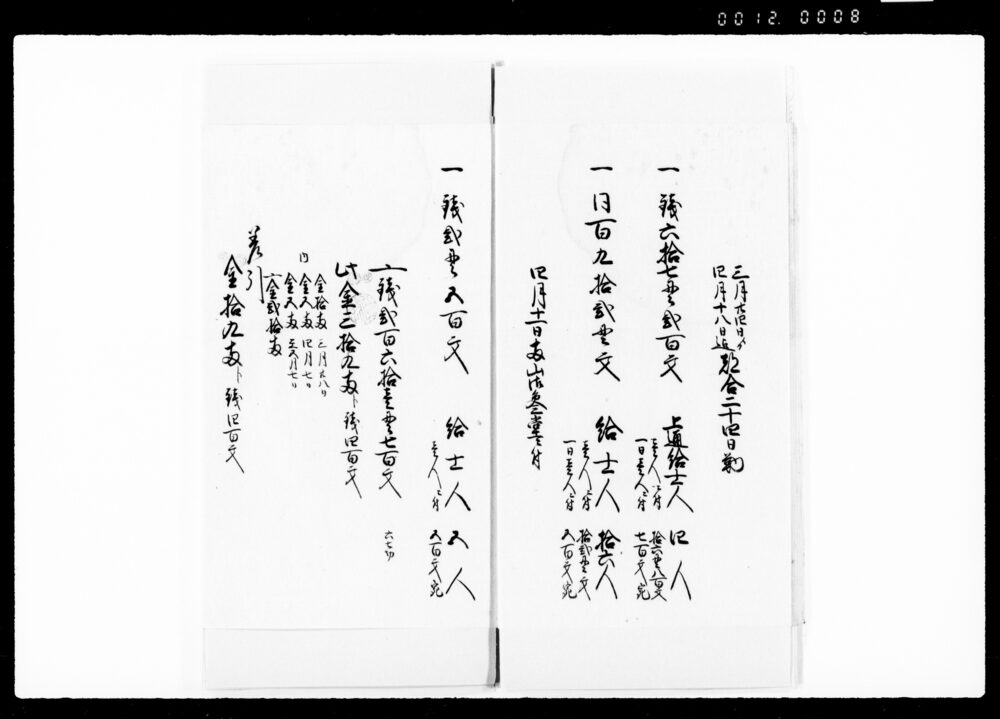 0012.0008
三月廿四日ゟ
四月十八日迄都合二十四日勤
一 銭六拾七貫弐百文 上通給士人 四人
壱人ニ付 拾六貫八百文
一日壱人ニ付 七百文宛
一 同百九拾弐貫文 給士人 拾六人
壱人ニ付 拾弐貫文
一日壱人ニ付 五百文宛
四月十一日
一 銭弐貫五百文 給士人 五人
壱人ニ付 五百文宛
〆銭弐百六拾壱貫七百文
六七切
此金三拾九両ト銭四百文
内
金拾両 三月廿八日
金五両 四月七日
金五両
〆金弐拾両
差引
金拾九両ト銭四百文